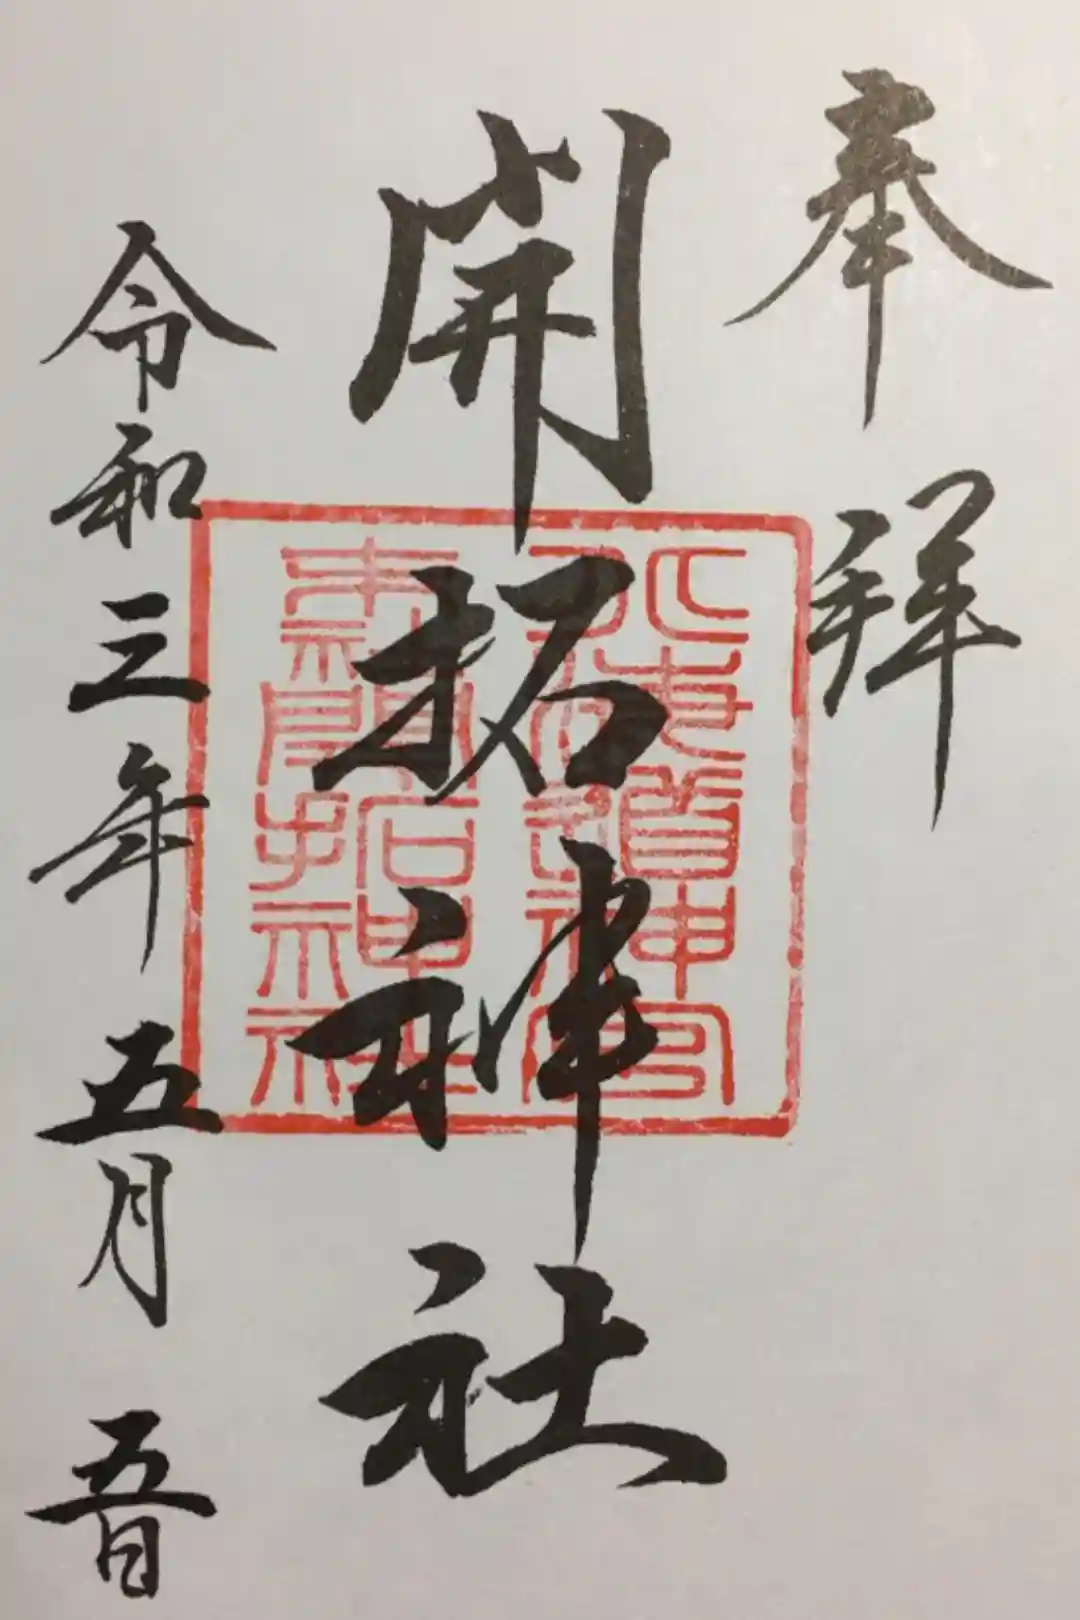 奉拝
開拓神社
北海道神宮
末社開拓神社
令和三年五月五日